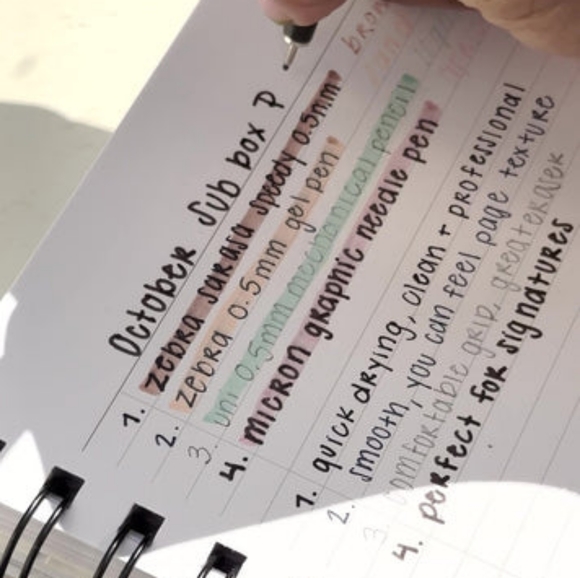 October Sub box P
1. zebra sarasa speedy 0.5mm
2. zebra 0.5mm gel pen
3. uni 0.5mm mechanical pencil
4. micron graphic needle pen
1. quick drying, clean + professional
2. smooth, you can feel page texture
3. comfortable grip, great eraser
4. perfect for signatures